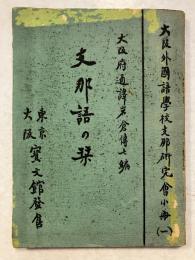 大阪外國語學校支那研究會小冊(一)
大阪府通譯岩倉傳七編
支那語の栞
東京
大阪
寶文館發售